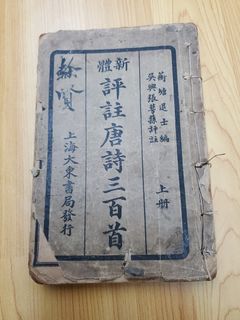 蘅塘退士編
吳興張萼蓀評註
上册
新體
評註唐詩三百首
上海大東書局發行